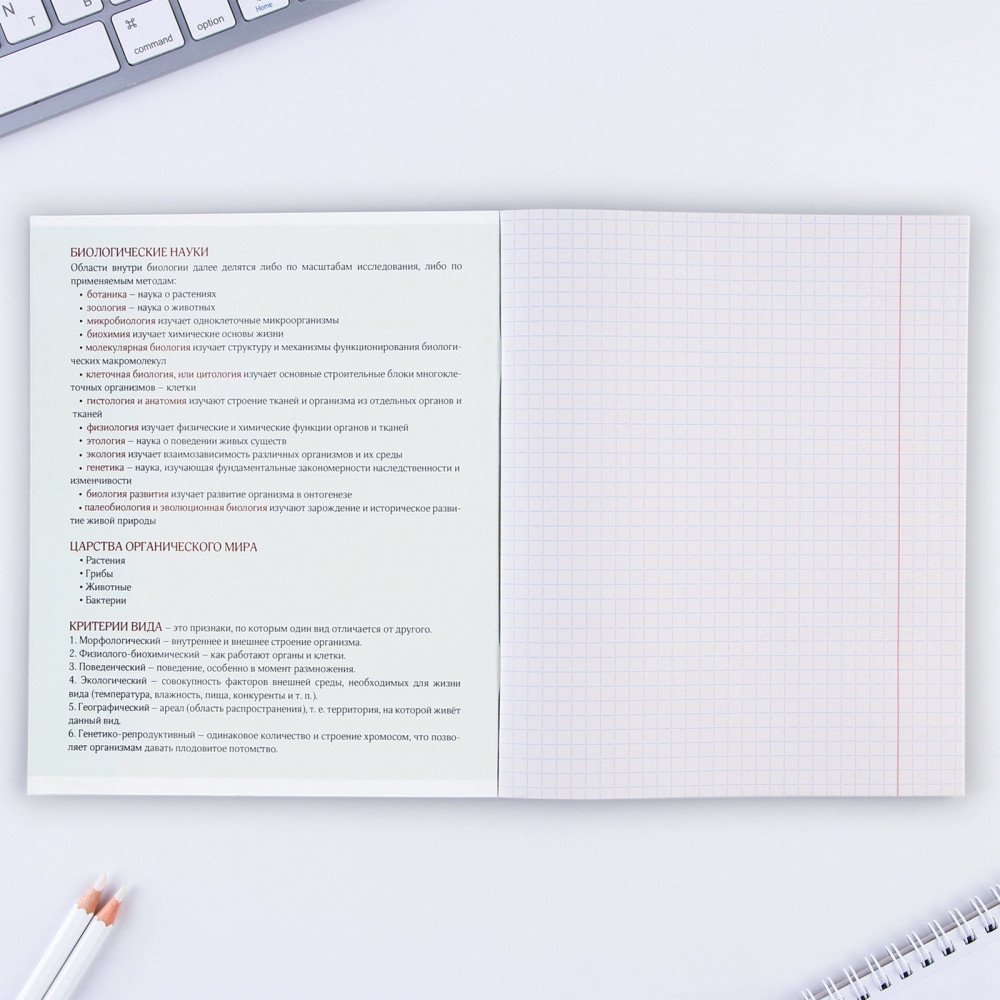 N
T
B
⌘
command
option
Home
БИОЛОГИЧЕСКИЕ НАУКИ
Области внутри биологии далее делятся либо по масштабам исследования, либо по
применяемым методам:
• ботаника – наука о растениях
• зоология – наука о животных
• микробиология изучает одноклеточные микроорганизмы
• биохимия изучает химические основы жизни
• молекулярная биология изучает структуру и механизмы функционирования биологи-
ческих макромолекул
• клеточная биология, или цитология изучает основные строительные блоки многокле-
точных организмов – клетки
• гистология и анатомия изучают строение тканей и организма из отдельных органов и
тканей
• физиология изучает физические и химические функции органов и тканей
• этология – наука о поведении живых существ
• экология изучает взаимозависимость различных организмов и их среды
• генетика – наука, изучающая фундаментальные закономерности наследственности и
изменчивости
• биология развития изучает развитие организма в онтогенезе
• палеобиология и эволюционная биология изучают зарождение и историческое разви-
тие живой природы
ЦАРСТВА ОРГАНИЧЕСКОГО МИРА
• Растения
• Грибы
• Животные
• Бактерии
КРИТЕРИИ ВИДА – это признаки, по которым один вид отличается от другого.
1. Морфологический – внутреннее и внешнее строение организма.
2. Физиолого-биохимический – как работают органы и клетки.
3. Поведенческий – поведение, особенно в момент размножения.
4. Экологический – совокупность факторов внешней среды, необходимых для жизни
вида (температура, влажность, пища, конкуренты и т. п.).
5. Географический – ареал (область распространения), т. е. территория, на которой живёт
данный вид.
6. Генетико-репродуктивный – одинаковое количество и строение хромосом, что позво-
ляет организмам давать плодовитое потомство.